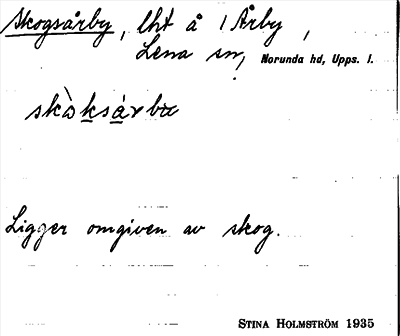 Skogsårby, lht å 1 Årby,
Lena sn, Norunda hd, Upps. l.
skò̀ksárbu
Ligger omgiven av skog.
STINA HOLMSTRÖM 1935